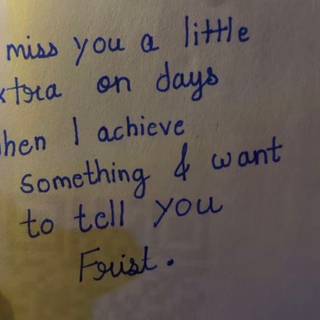 miss you a little
xtra on days
hen I achieve
something & want
to tell you
Frist.